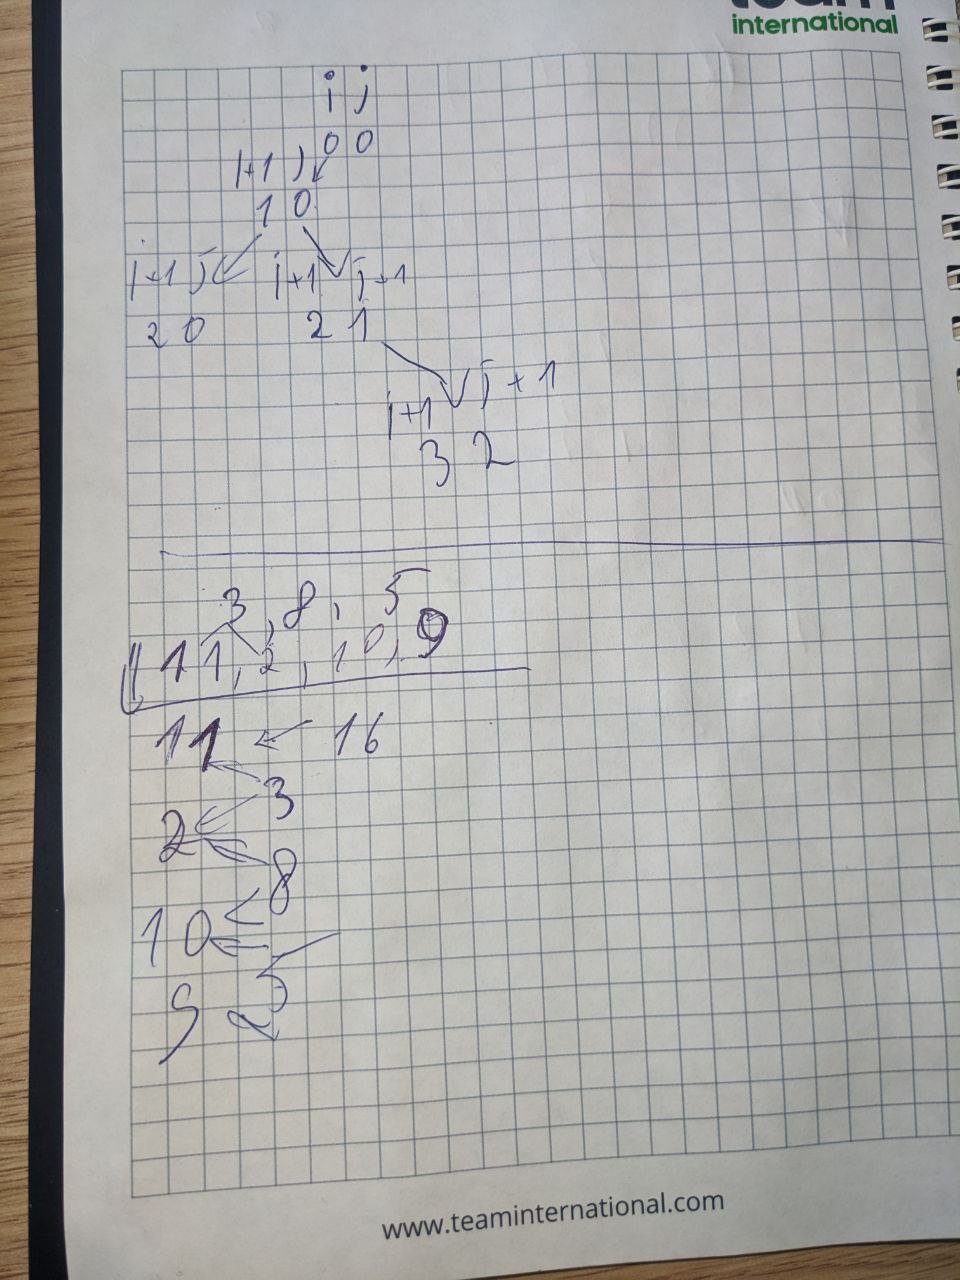 team
international
i j
0 0
i+1 j
1 0
i+1 j i+1 j+1
2 0 2 1
i+1 j+1
3 2
3, 8, 5
11, 2, 10, 9
11 ← 16
3
2
8
10
5
9
www.teaminternational.com